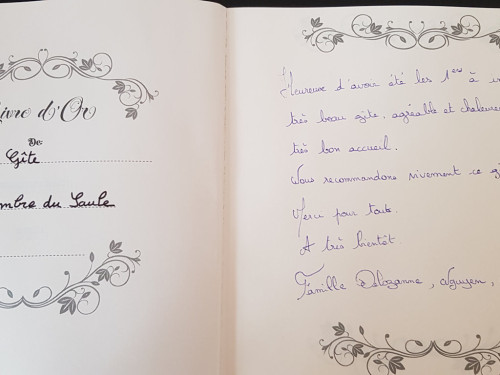 Livre d'Or
De:
Gîte
ombre du Saule
Heureux d'avoir été les 1ers à
très beau gîte, agréable et chaleureu
très bon accueil.
Nous recommandons vivement ce g
Merci pour tout.
A très bientôt
Famille Delizanne, Nguyen,